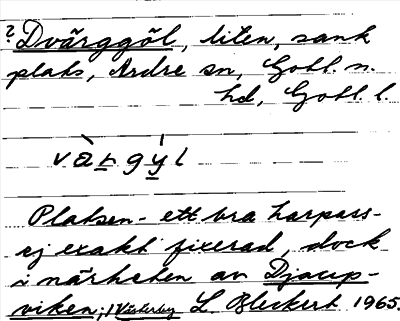 ? Dvärggöl, liten, sank
plats, Ardre sn, Gotl. n.
hd, Gotl. l.
vàrgýl
Platsen - ett bra harpass -
ej exakt fixerad, dock
i närheten av Djaup-
viken, i Västerby L. Bleckert 1965.